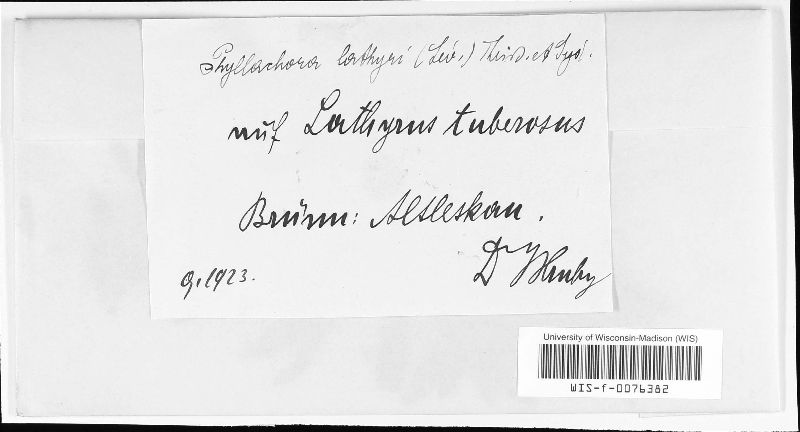 Phyllachora lathyri (Lév.) Theiss. et Syd.
auf Lathyrus tuberosus
Brünn: Altleskau.
9.1923.
Dr J Hruby
University of Wisconsin-Madison (WIS)
WIS-f-0076382